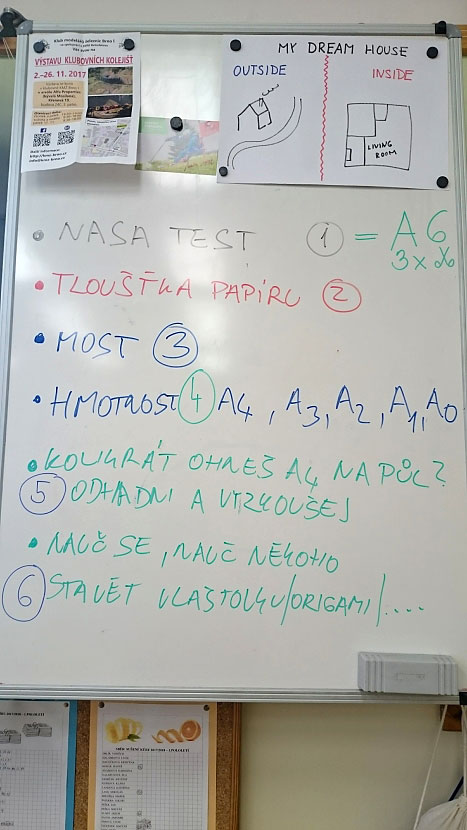 Klub modelářů železnic Brno I
VÝSTAVU KLUBOVNÍCH KOLEJIŠŤ
2.–26. 11. 2017
MY DREAM HOUSE
OUTSIDE
INSIDE
LIVING
ROOM
• NASA TEST 1 = A6
3x
• TLOUŠŤKA PAPÍRU 2
• MOST 3
• HMOTNOST 4 A4, A3, A2, A1, A0
• KOLIKRÁT OHNEŠ A4 NA PŮL?
5 ODHADNI A VYZKOUŠEJ
• NAUČ SE, NAUČ NĚKOHO
6 STAVĚT VLAŠTOVKU/ORIGAMI/....